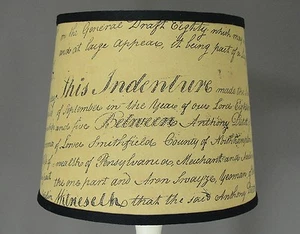 in the General Draft Eighty which
was at large appears, It being part of
This Indenture made
of September in the Year of our Lord
and five Between Anthony
of Lower Smithfield County of
of Pensylvania Merchant and
the one part and Aron Swayze, Yeoman
Witnesseth that the said Anthony